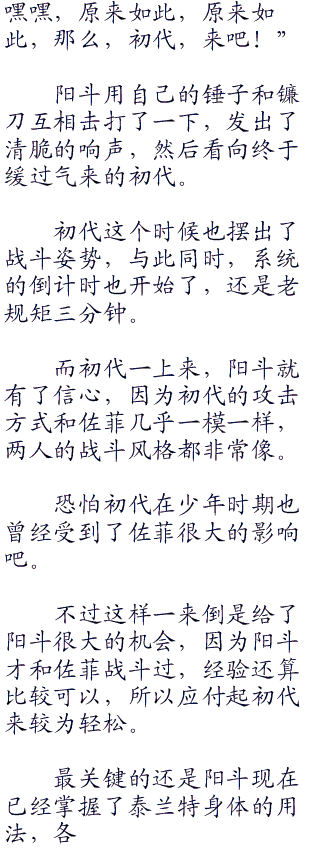 嘿嘿，原来如此，原来如
此，那么，初代，来吧！”
阳斗用自己的锤子和镰
刀互相击打了一下，发出了
清脆的响声，然后看向终于
缓过气来的初代。
初代这个时候也摆出了
战斗姿势，与此同时，系统
的倒计时也开始了，还是老
规矩三分钟。
而初代一上来，阳斗就
有了信心，因为初代的攻击
方式和佐菲几乎一模一样，
两人的战斗风格都非常像。
恐怕初代在少年时期也
曾经受到了佐菲很大的影响
吧。
不过这样一来倒是给了
阳斗很大的机会，因为阳斗
才和佐菲战斗过，经验还算
比较可以，所以应付起初代
来较为轻松。
最关键的还是阳斗现在
已经掌握了泰兰特身体的用
法，各